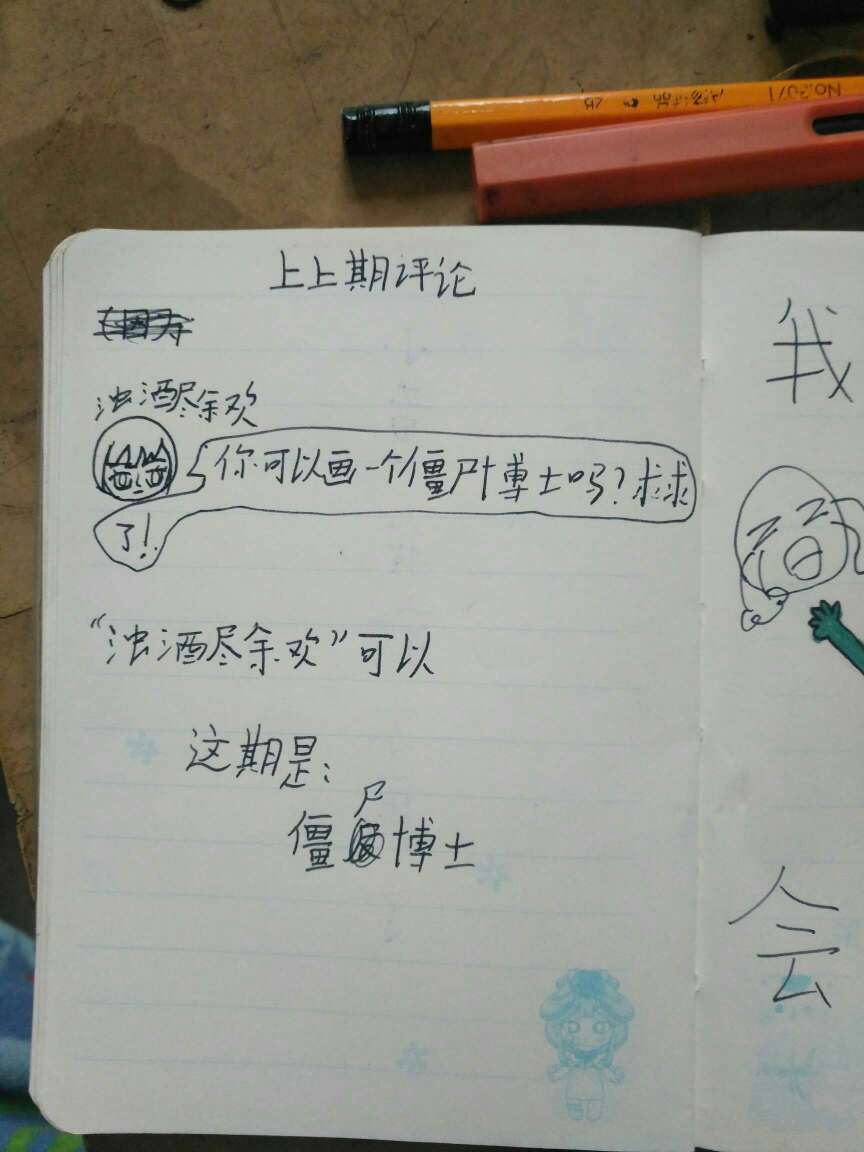 No.2071
上上期评论
浊酒尽余欢
你可以画一个僵尸博士吗？求求
了！
“浊酒尽余欢”可以
这期是：
尸
僵博士
我
会